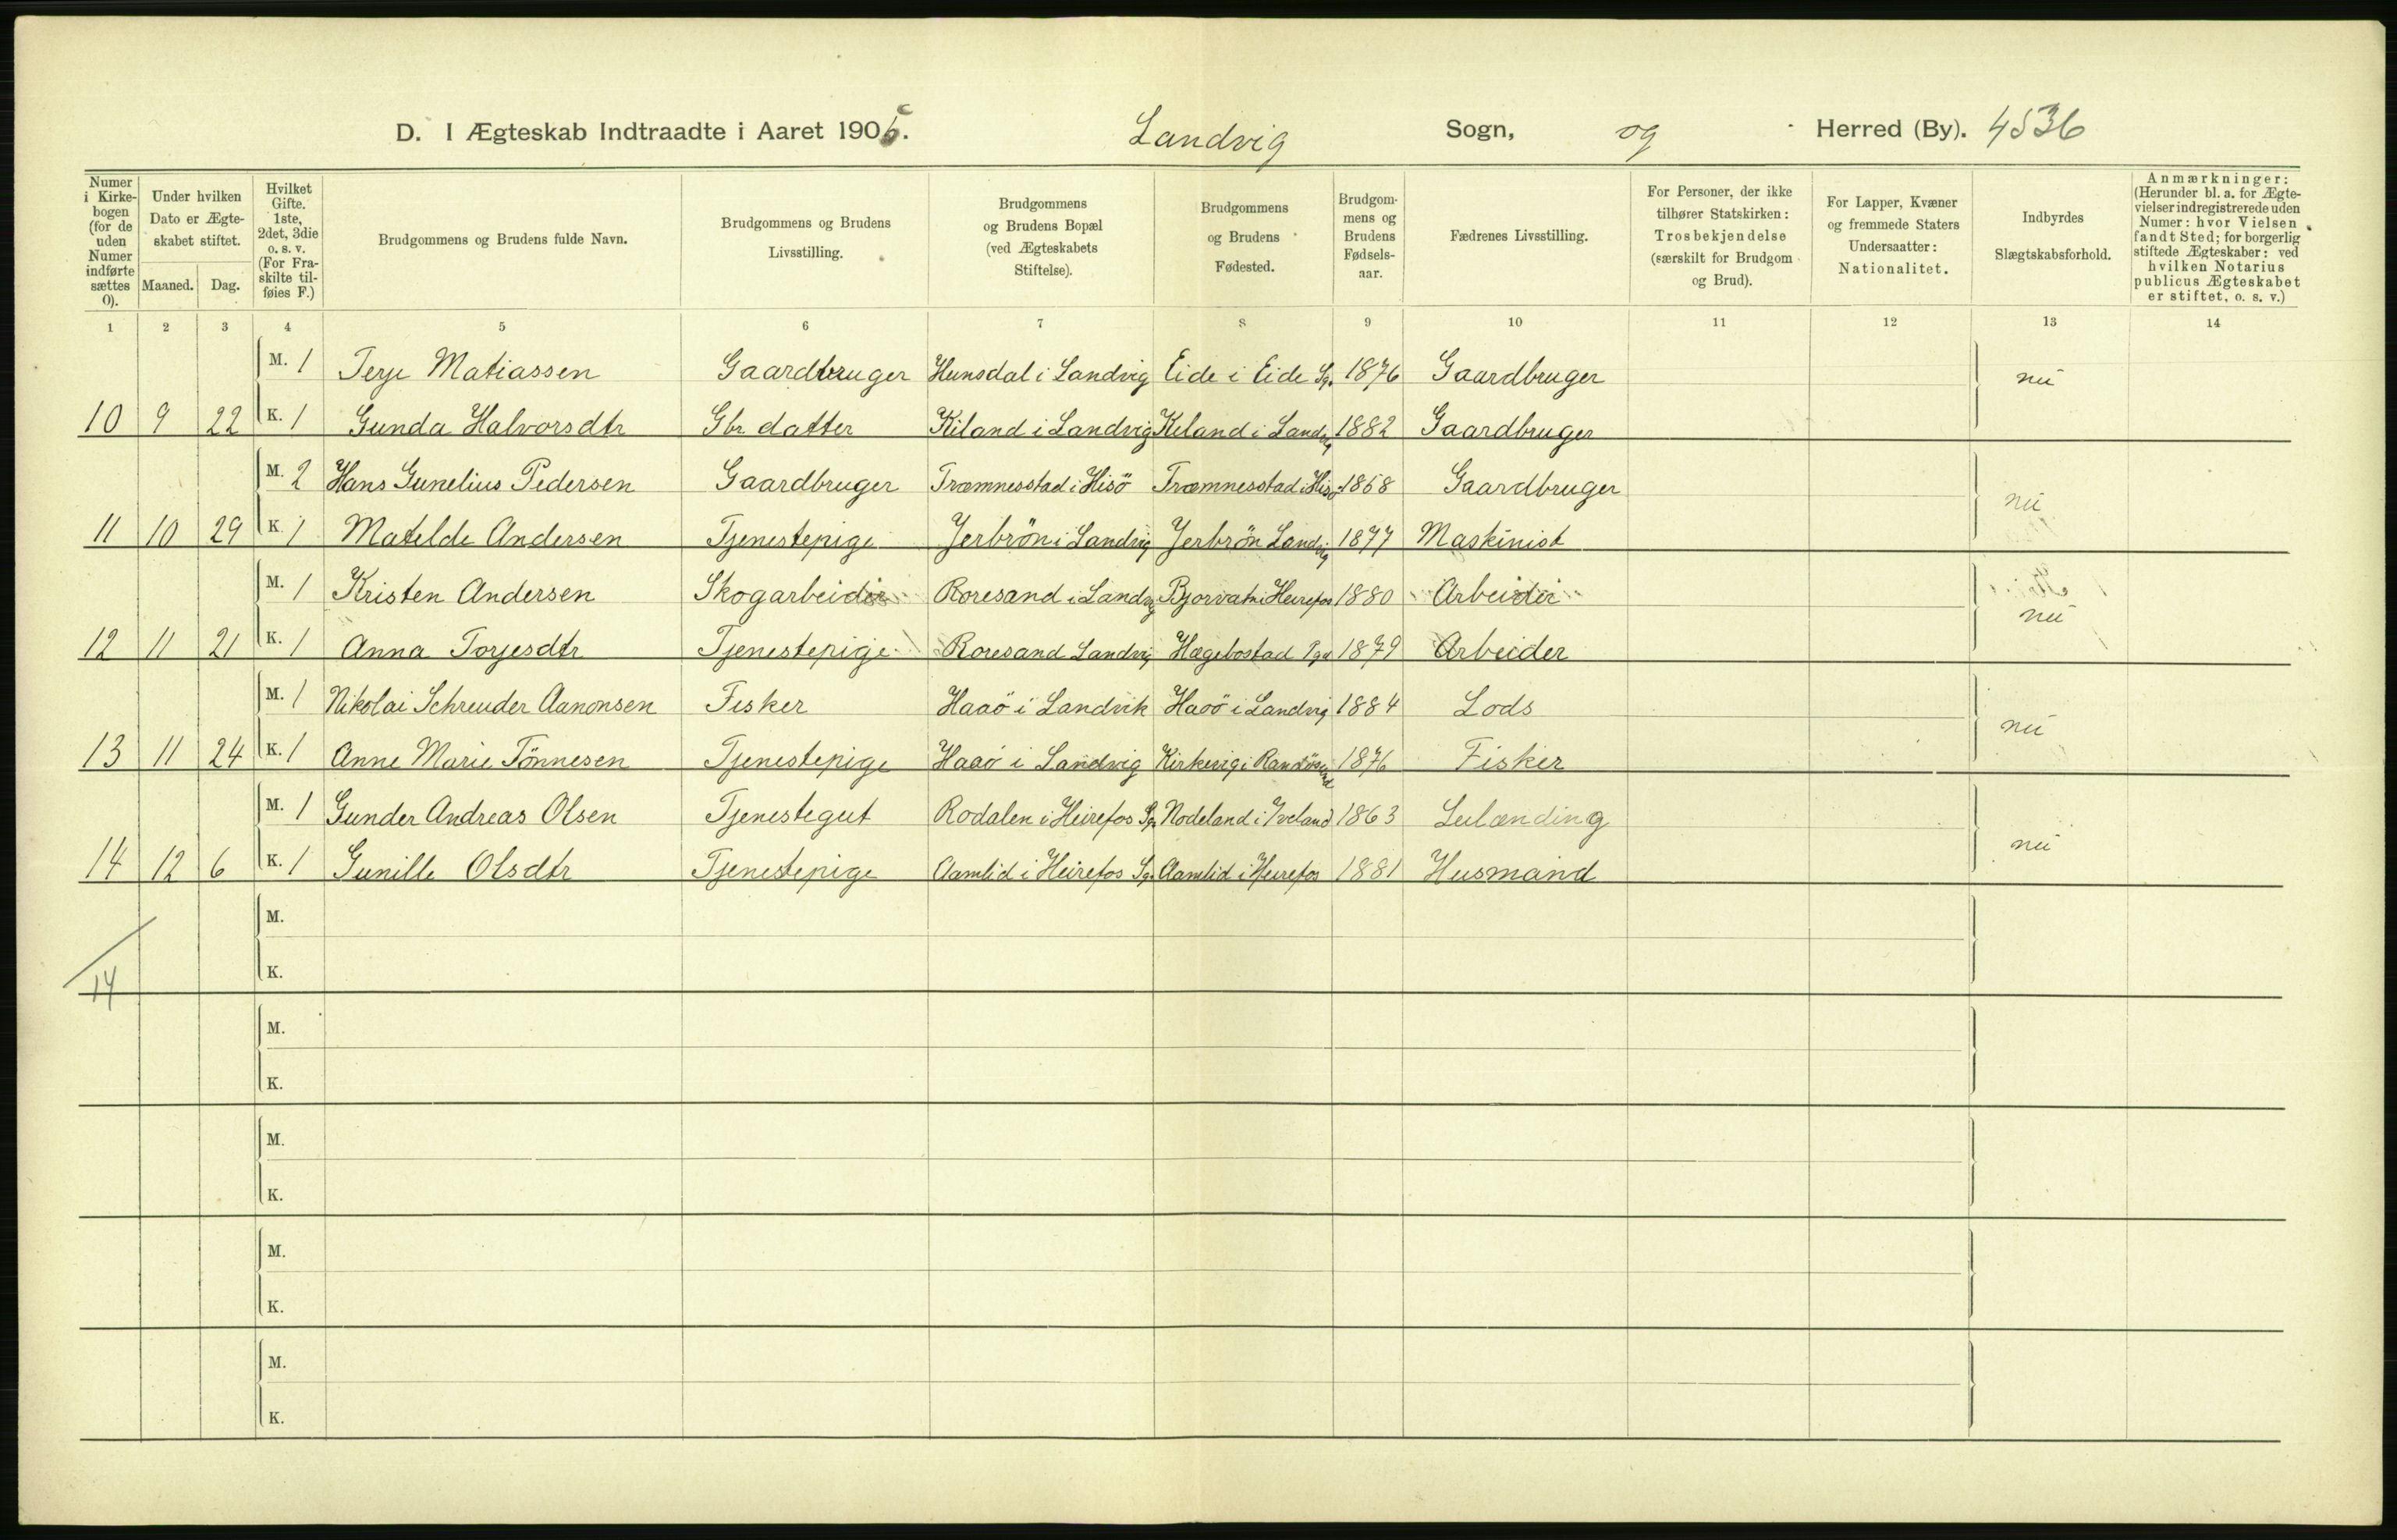 D. I Ægteskab Indtraadte i Aaret 1905. Landvig Sogn, og Herred (By). 4536
Numer i Kirkebogen (for de uden Numer indførte sættes 0).
Under hvilken Dato er Ægteskabet stiftet.
Maaned. Dag.
Hvilket Gifte. 1ste, 2det, 3die o. s. v. (For Fraskilte tilføies F.)
Brudgommens og Brudens fulde Navn.
Brudgommens og Brudens Livsstilling.
Brudgommens og Brudens Bopæl (ved Ægteskabets Stiftelse).
Brudgommens og Brudens Fødested.
Brudgommens og Brudens Fødselsaar.
Fædrenes Livsstilling.
For Personer, der ikke tilhører Statskirken: Trosbekjendelse (særskilt for Brudgom og Brud).
For Lapper, Kvæner og fremmede Staters Undersaatter: Nationalitet.
Indbyrdes Slægtskabsforhold.
Anmærkninger: (Herunder bl. a. for Ægtevielser indregistrerede uden Numer: hvor Vielsen fandt Sted; for borgerlig stiftede Ægteskaber: ved hvilken Notarius publicus Ægteskabet er stiftet, o. s. v.)
1 2 3 4 5 6 7 8 9 10 11 12 13 14
M. 1 Terje Matiassen Gaardbruger Hunsdal i Landvig Eide i Eide Sg. 1876 Gaardbruger nei
10 9 22 K. 1 Gunda Halvorsdtr Gbr. datter Kiland i Landvig Kiland i Landvig 1882 Gaardbruger
M. 2 Hans Gunelius Pedersen Gaardbruger Tramnesstad i Hisö Tramnesstad i Hisö 1868 Gaardbruger nei
11 10 29 K. 1 Matelde Andersen Tjenestepige Jerbrön i Landvig Jerbrön Landvig 1877 Maskinist
M. 1 Kristen Andersen Skogarbeider Roresand i Landvig Bjorvatn Heirefos 1880 Arbeider nei
12 11 21 K. 1 Anna Torjesdtr Tjenestepige Roresand Landvig Hægebostad Pgd 1879 Arbeider
M. 1 Nikolai Schreuder Aanonsen Fisker Haaö i Landvik Haaö i Landvig 1884 Lods nei
13 11 24 K. 1 Anne Marie Tönnesen Tjenestepige Haaö i Landvig Kirkevig i Randösund 1876 Fisker
M. 1 Gunder Andreas Olsen Tjenestegut Rodalen i Heirefos Sg. Nodeland i Iveland 1863 Leilænding nei
14 12 6 K. 1 Gunille Olsdtr Tjenestepige Aamlid i Heirefos Sg. Aamlid i Heirefos 1881 Husmand
M.
14 K.
M.
K.
M.
K.
M.
K.
M.
K.